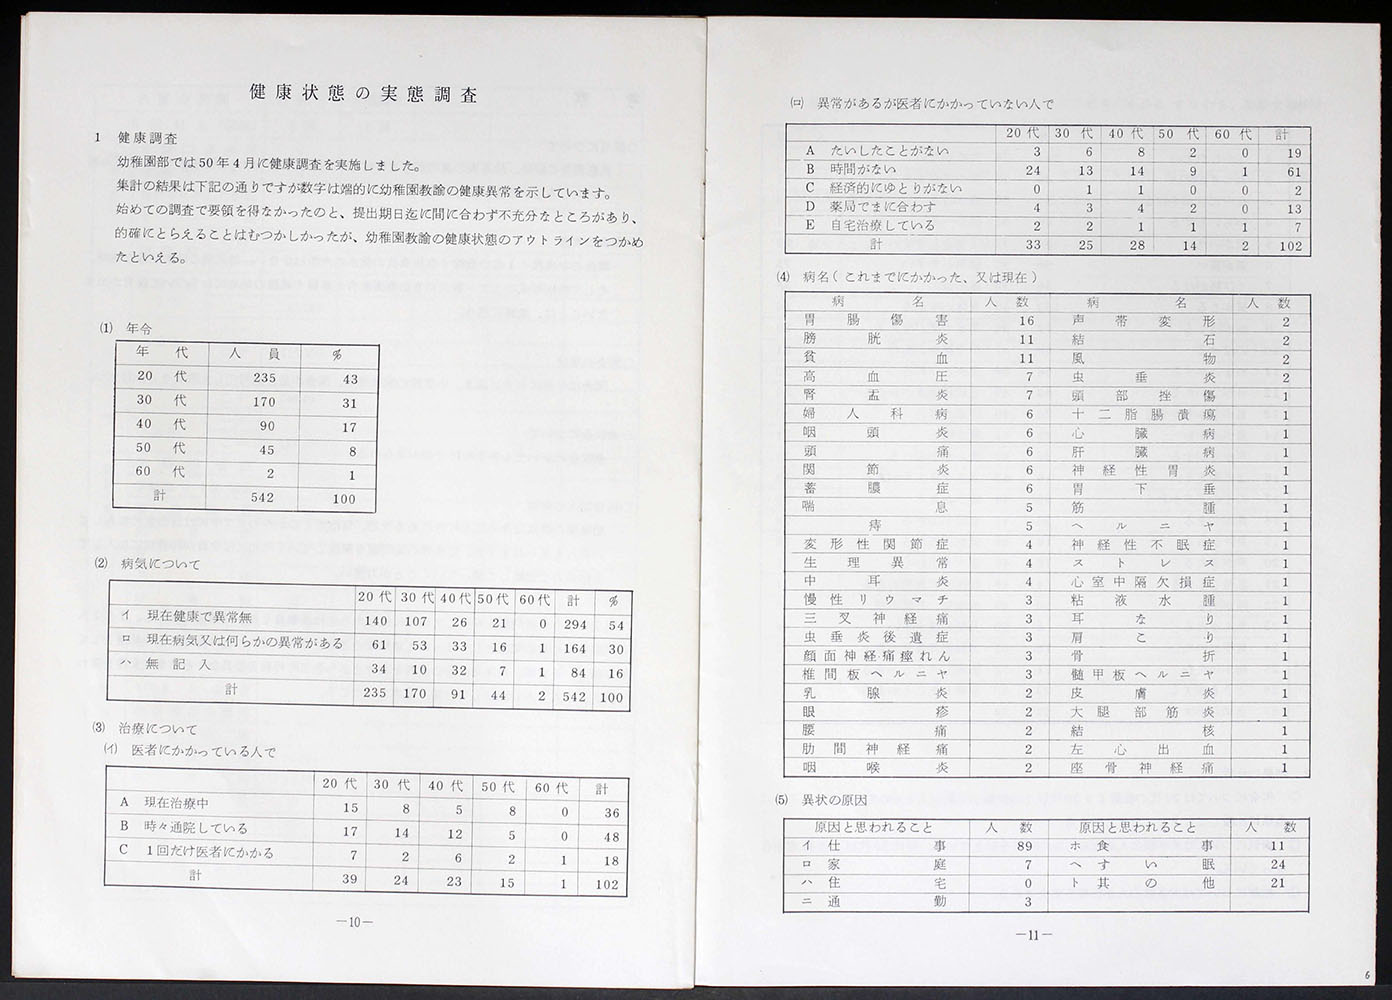 健康状態の実態調査
1 健康調査
幼稚園部では50年4月に健康調査を実施しました。
集計の結果は下記の通りですが数字は端的に幼稚園教諭の健康異常を示しています。
始めての調査で要領を得なかったのと、提出期日迄に間に合わず不充分なところがあり、
的確にとらえることはむつかしかったが、幼稚園教諭の健康状態のアウトラインをつかめ
たといえる。
⑴ 年令
年代 人員 %
20代 235 43
30代 170 31
40代 90 17
50代 45 8
60代 2 1
計 542 100
⑵ 病気について
20代 30代 40代 50代 60代 計 %
イ 現在健康で異常無 140 107 26 21 0 294 54
ロ 現在病気又は何らかの異常がある 61 53 33 16 1 164 30
ハ 無記入 34 10 32 7 1 84 16
計 235 170 91 44 2 542 100
⑶ 治療について
(イ) 医者にかかっている人で
20代 30代 40代 50代 60代 計
A 現在治療中 15 8 5 8 0 36
B 時々通院している 17 14 12 5 0 48
C 1回だけ医者にかかる 7 2 6 2 1 18
計 39 24 23 15 1 102
—10—
(ロ) 異常があるが医者にかかっていない人で
20代 30代 40代 50代 60代 計
A たいしたことがない 3 6 8 2 0 19
B 時間がない 24 13 14 9 1 61
C 経済的にゆとりがない 0 1 1 0 0 2
D 薬局でまに合わす 4 3 4 2 0 13
E 自宅治療している 2 2 1 1 1 7
計 33 25 28 14 2 102
⑷ 病名(これまでにかかった、又は現在)
病名 人数 病名 人数
胃腸傷害 16 声帯変形 2
膀胱炎 11 結石 2
貧血 11 風物 2
高血圧 7 虫垂炎 2
腎盂炎 7 頭部挫傷 1
婦人科病 6 十二脂腸潰瘍 1
咽頭炎 6 心臓病 1
頭痛 6 肝臓病 1
関節炎 6 神経性胃炎 1
蓄膿症 6 胃下垂 1
喘息 5 筋腫 1
痔 5 ヘルニヤ 1
変形性関節症 4 神経性不眠症 1
生理異常 4 ストレス 1
中耳炎 4 心室中隔欠損症 1
慢性リウマチ 3 粘液水腫 1
三叉神経痛 3 耳なり 1
虫垂炎後遺症 3 肩こり 1
顔面神経・痛痙れん 3 骨折 1
椎間板ヘルニヤ 3 髄甲板ヘルニヤ 1
乳腺炎 2 皮膚炎 1
眼疹 2 大腿部筋炎 1
腰痛 2 結核 1
肋間神経痛 2 左心出血 1
咽喉炎 2 座骨神経痛 1
⑸ 異状の原因
原因と思われること 人数 原因と思われること 人数
イ 仕事 89 ホ 食事 11
ロ 家庭 7 ヘ すい眠 24
ハ 住宅 0 ト 其の他 21
ニ 通勤 3
—11—
6